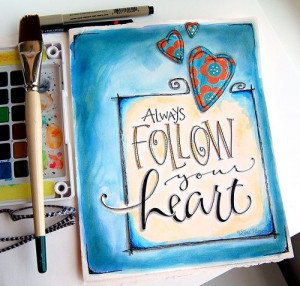 Always
FOLLOW
your
heart